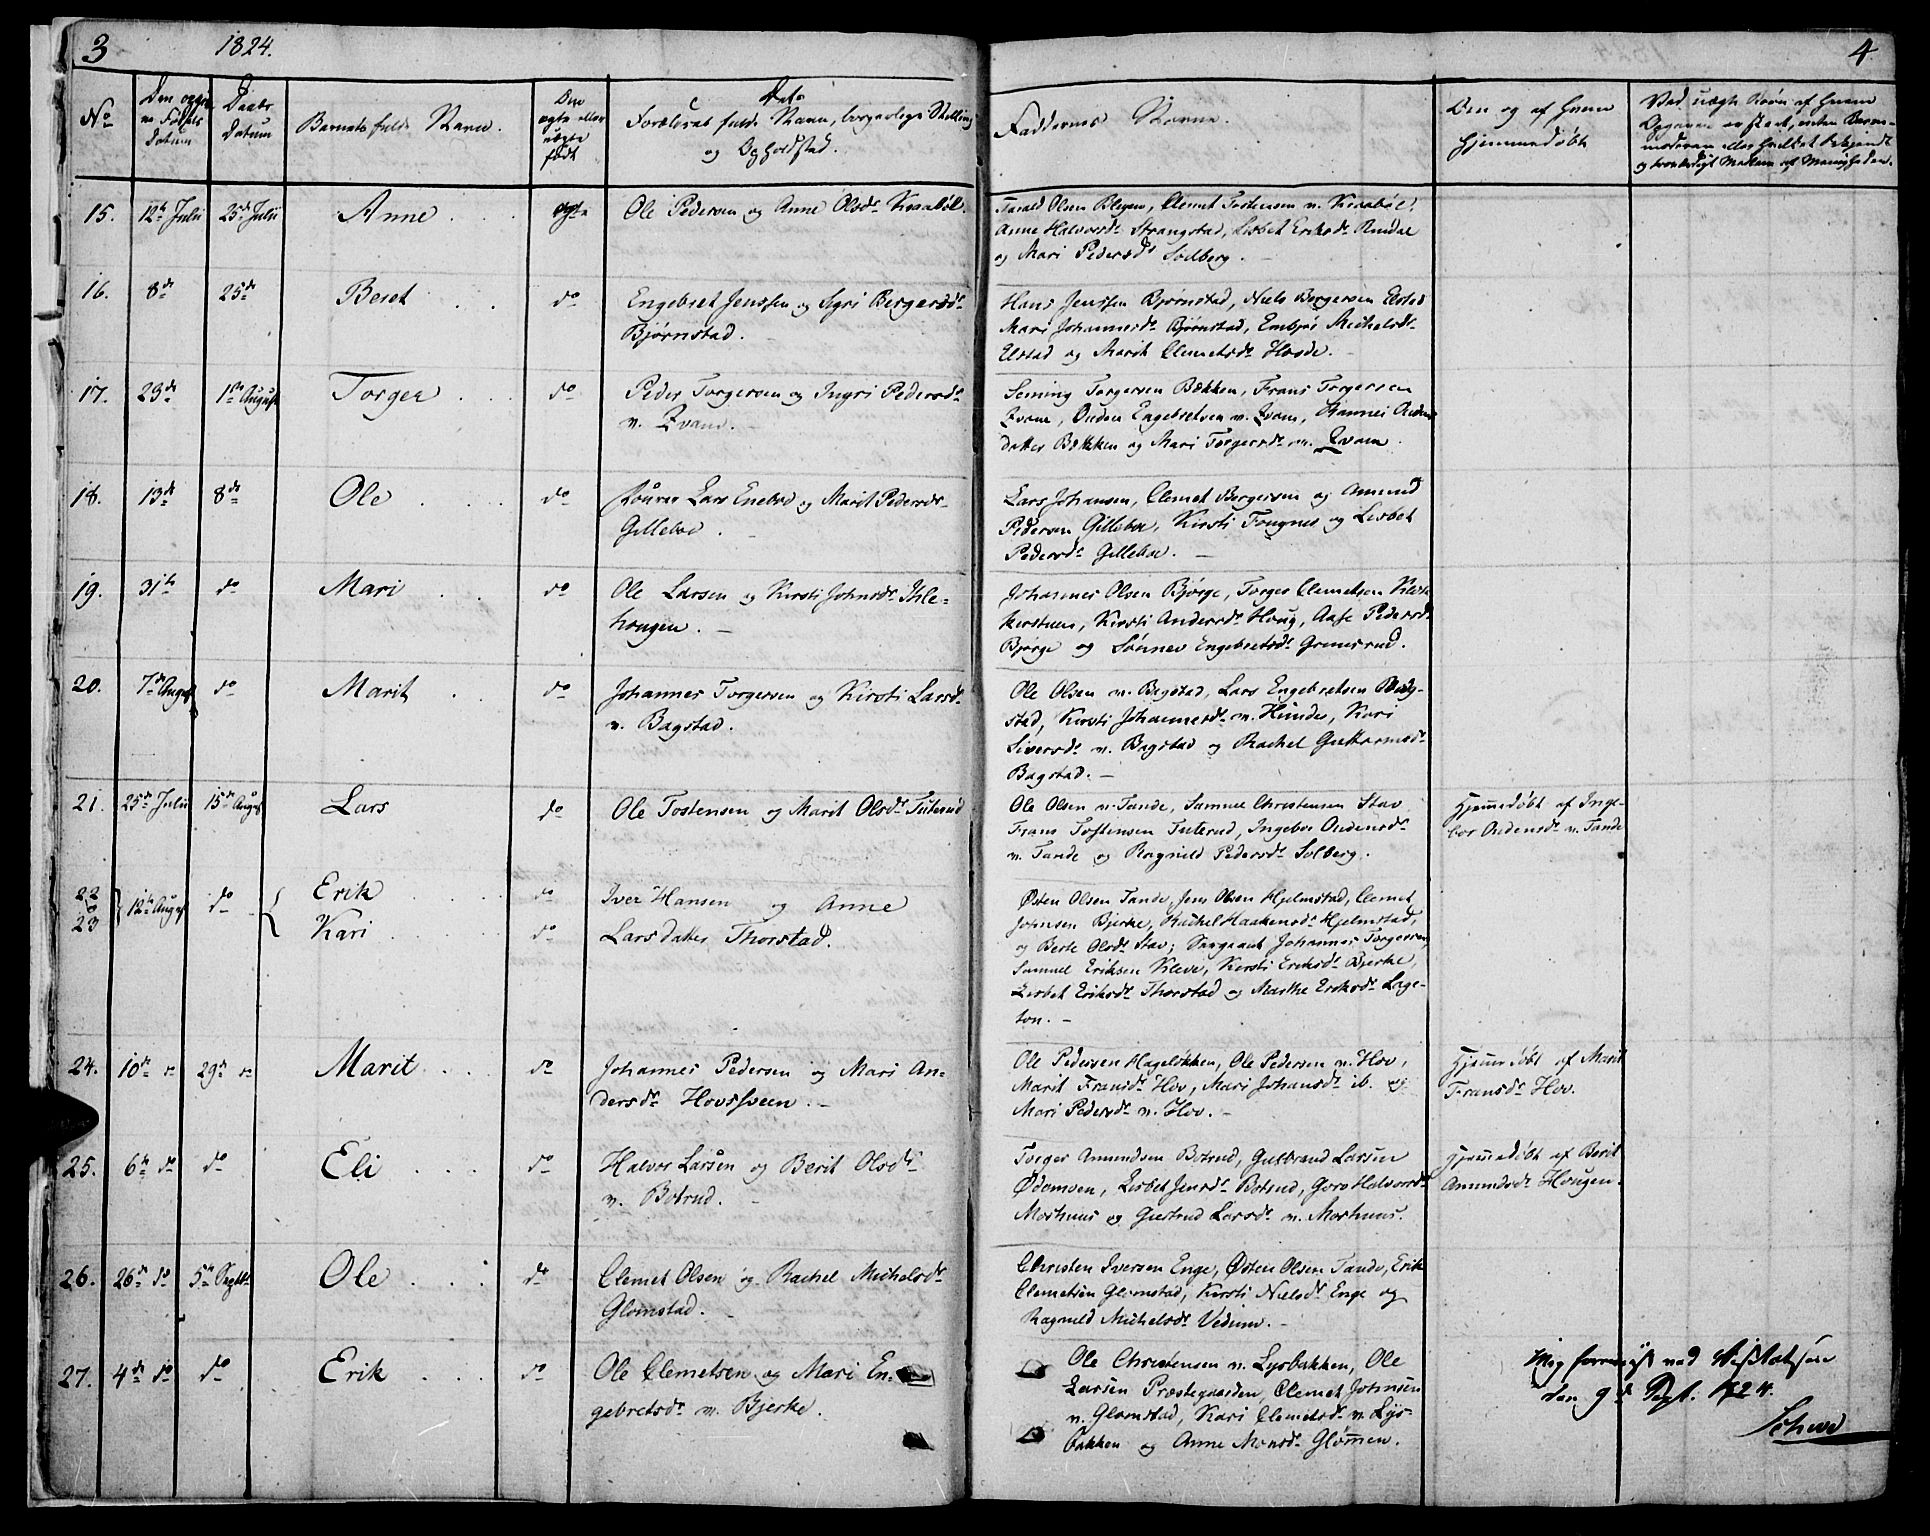 3 1824. 4.
No
Daabs
Datum
Barnets fulde Navn.
Den
ægte eller
uægte
født
Forældres fulde Navn, borgerlige Stilling
og Opholdsted.
Faddernes Navne.
Om og af hvem
hjemmedøbt
15. 12te Julii 25de Julii Anne ægte Ole Pedersen og Anne Olsdr
Olsen Clemet Tostensen n.
Anne Halvorsdr Strangstad, Lisbet Eriksdr
og Mari Pedersdr Solberg. -
16. 8de 25de Beret do Engebret Jenssen og Sigri Bergersdr
Bjørnstad.
Hans Jenssen Bjørnstad, Niels Bergersen Elstad
Mari Johannesdr Bjørnstad, Embjør Michelsdr
Elstad og Marit Clemetsdr
17. 23de 1ste August Torger do Peder Torgersen og Ingri Pedersdr
n. Qvam. -
Seming Torgersen Bækken, Frans Torgersen
Qvam, Ouden Engebretsen n. Qvam, Rannei Oudens
datter Bækken og Mari Torgersdr n. Qvam.
18. 13de 8de Ole do Lars Eneboe og Marit Pedersdr
Gilleboe. -
Lars Johansen, Clemet Bergersen og Amund
Pedersen Gilleboe, Kirsti Fougnes og Lisbet
Pedersdr Gilleboe. -
19. 31te do Mari do Ole Larsen og Kirsti Johnsdr Ihle-
hougen. -
Johannes Olsen Bjørge, Torger Clemetsen
Kirsti Andersdr Houg, Aase Pedersdr
Bjørge og Sønnev Engebretsdr
20. 7de August do Marit do Johannes Torgersen og Kirsti Larsdr
n. Bagstad.
Ole Olsen n. Bagstad, Lars Engebretsen Bag-
stad, Kirsti Johannesdr n. Hunder, Kari
Siversdr n. Bagstad og Rachel Guttormsdr
Bagstad. -
21. 25de Julii 15de August Lars do Ole Tostensen og Marit Olsdr Tuterud
Ole Olsen n. Tande, Samuel Christensen Stav
Frans Tostensen Tuterud, Ingebor Oudensdr
n. Tande og Ragnild Pedersdr Solberg.
Hjemmedøbt af Inge-
bor Oudensdr n. Tande
22 Erik do Iver Hansen og Anne
12te August do
23 Kari do Larsdatter Thorstad.
Østen Olsen Tande, Jens Olsen Hjelmstad, Clemet
Johnsen Bjerke, Rachel Haakensdr Hjelmstad,
og Berte Olsdr Stav; Sergeant Johannes Torgersen,
Samuel Eriksen Kleve, Kirsti Eriksdr Bjerke,
Lisbet Eriksdr Thorstad og Marthe Eriksdr Løge-
ton. -
24. 10de 29de Marit do Johannes Pedersen og Mari An-
dersdr Hovssveen. -
Ole Pedersen Hageløkken, Ole Pedersen n. Hov,
Marit Fransdr Hov, Mari Johansdr ib. og
Mari Pedersdr n. Hov. -
Hjemmedøbt af Marit
Fransdr Hov.
25. 6te do do Eli do Halvor Larsen og Berit Olsdr
n. Botrud. -
Torger Amundsen Botrud, Gulbrand Larsen
Ødemoen, Lisbet Jensdr Botrud, Goro Halvorsdr
Morhuus og Giertrud Larsdr n. Morhuus.
Hjemmedøbt af Berit
Amundsdr Hougen.
26. 26de do 5te Septbr Ole do Clemet Olsen og Rachel Michelsdr
Glomstad. -
Christen Iversen Enge, Østen Olsen Tande, Erik
Clemetsen Glomstad, Kirsti Nielsdr Enge og
Ragnild Michelsdr Vedum. -
27. 4de do do Erik do Ole Clemetsen og Mari En-
gebretsdr n. Bjerke.
Ole Christensen n. Lysbakken, Ole
Larsen Præstegaarden, Clemet Johnsen
n. Glomstad, Kari Clemetsdr n. Lys-
bakken og Anne Monsdr Glømmen.
Mig foreviist ved Visitatsen
den 9de Sept. 1824.